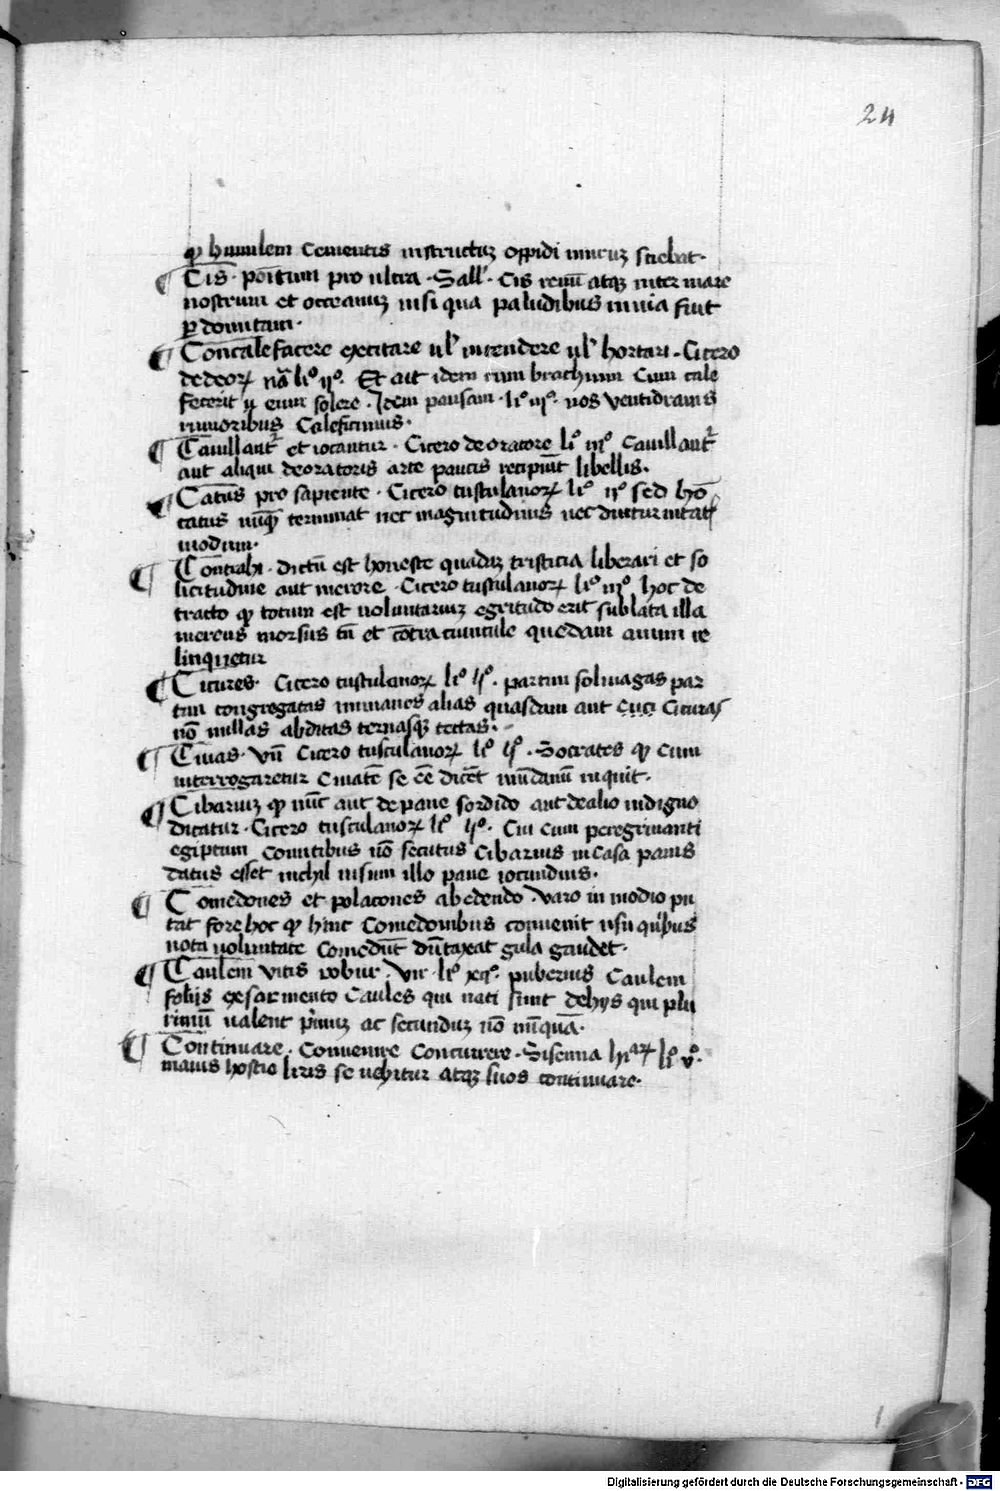 24
ꝙ humilem Cementis instructuʒ oppidi muruʒ sciebat·
¶ Cis· poītum pro ultra· Sall'· Cis renū atqʒ inter mare
nostrum et occeanuʒ nisi qua paludibus inuia fuit
ꝑdomitam·
¶ Concalefacere excitare ul' incendere ul' hortari· Cicero
dedeoꝝ nā liº ijº· Et ait idem cum brachium Cum cale
fecerit eum solere· Idem pausam· liº iijº· nos ventidianis
rumoribus Caleficimus·
¶ Cauillant̄ et iocantur· Cicero deoratore liº iijº Cauillant̄
aut aliqui deoratoris arte paucis recipiūt libellis·
¶ Catus pro sapiente· Cicero tusculanoꝝ liº ijº sed hō
catus nūqꝫ terminat nec magnitudinis nec diuturnitat
modum·
¶ Contrahi· dictū est honeste quadaʒ tristicia liberari et so
licitudine aut merore· Cicero tusculanoꝝ liº iijº hoc de
tracto ꝙ totum est uoluntariuʒ egritudo erit sublata illa
merens morsus tn̄ et cōtractiuncule quedam animi re
linquetur
¶ Cicures· Cicero tusculanoꝝ liº vº· partim soliuagas par
tim congregatas immanes alias quasdam aut Cicuras
nō nullas abditas terrasqʒ tectas·
¶ Ciuas· vn̄ Cicero tusculanoꝝ liº vº· Socrates ꝙ Cum
interrogaretur Cuiatē se eē dicēt mūdanū inquit·
¶ Cibariuʒ ꝙ nūc aut de pane sordido aut dealio indigno
dicatur· Cicero tusculanoꝝ liº vº· Cui cum peregrinanti
egiptum Comitibus nō secutus Cibarius in Casa panis
datus esset nichil uisum illo pane iocundius·
¶ Comedones et polacones abedendo· Varo in modio pu
tat fore hoc ꝙ hinc Comedonibus conuenit usu quibus
nota uoluntate Comedūt dūtaxat gula gaudet·
¶ Caulem vitis robur· Vir· liº xijº· puberius Caulem
folijs exsarmento Caules qui nati sunt dehys qui plu
rimū ualent pīmuʒ ac secunduʒ nō nūquā·
¶ Continuare· Conuenire Concurrere· Sisenna hiaꝝ liº vº·
manis hostio liris se uehitur atqʒ suos continuare·
1
Digitalisierung gefördert durch die Deutsche Forschungsgemeinschaft - DFG